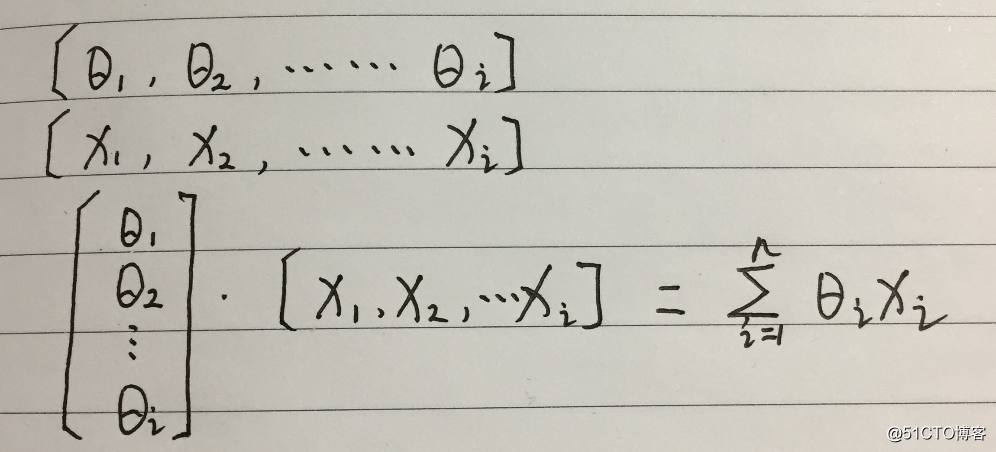 [θ₁, θ₂, ⋯⋯ θᵢ]
[X₁, X₂, ⋯⋯ Xᵢ]
[θ₁ θ₂ ⋮ θᵢ] · [X₁, X₂, ⋯Xᵢ] = ∑ⁿᵢ₌₁ θᵢXᵢ
@51CTO博客